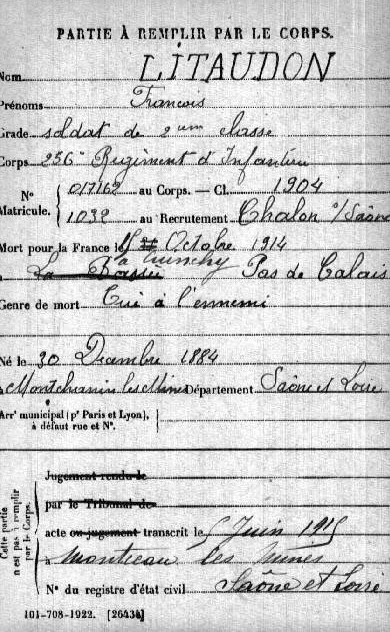 PARTIE À REMPLIR PAR LE CORPS.
Nom LITAUDON
Prénoms François
Grade soldat de 2eme classe
Corps 256e Régiment d'Infanterie
N° Matricule. 017162 au Corps. — Cl. 1904
1032 au Recrutement Chalon s/Saône
Mort pour la France le Octobre 1914
à Cuinchy
à La Bassée Pas de Calais
Genre de mort Tué à l'ennemi
Né le 30 Décembre 1884
à Montchanin les Mines Département Saône et Loire
Arrt municipal (pr Paris et Lyon),
à défaut rue et N°.
Cette partie n'est pas à remplir par le Corps.
Jugement rendu le
par le Tribunal de
acte ou jugement transcrit le Juin 1915
à Montceau les Mines
N° du registre d'état civil Saône et Loire
101-708-1922. [26434]